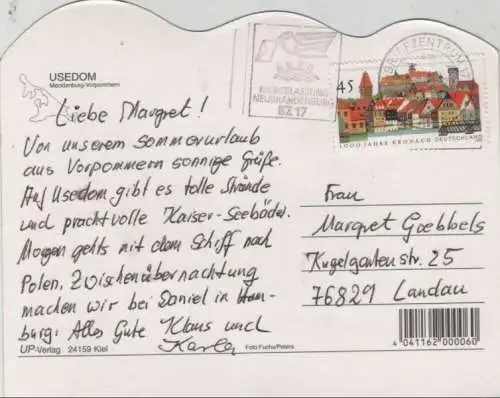 USEDOM
Mecklenburg-Vorpommern
Liebe Margret!
Von unserem Sommerurlaub
aus Vorpommern sonnige Grüße.
Auf Usedom gibt es tolle Strände
und prachtvolle Kaiser-Seebäder.
Morgen gehts mit dem Schiff nach
Polen. Zwischenübernachtung
machen wir bei Daniel in Ham-
burg. Alles Gute Klaus und
Karla
UP-Verlag 24159 Kiel
Foto Fuchs/Peters
NIEDERLASSUNG
NEUBRANDENBURG
BZ 17
BRIEFZENTRUM
45
1000 JAHRE KRONACH DEUTSCHLAND
Frau
Margret Goebbels
Kugelgartenstr. 25
76829 Landau
4 041162 000060